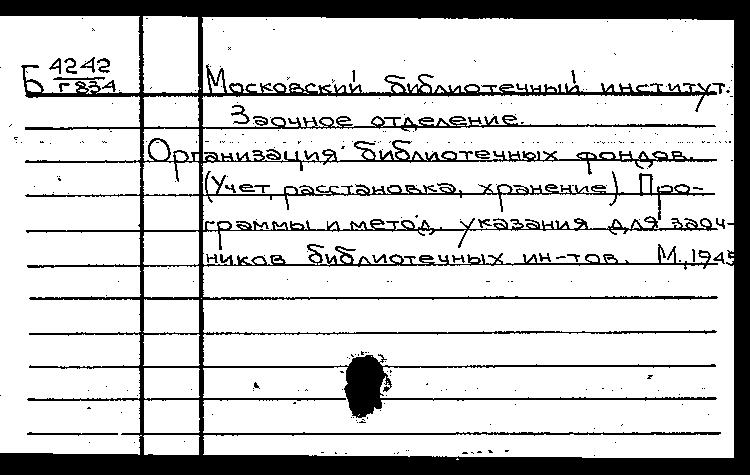 Б 4242
Г834
Московский библиотечный институт.
Заочное отделение.
Организация библиотечных фондов.
(Учет, расстановка, хранение). Про-
граммы и метод. указания для заоч-
ников библиотечных ин-тов. М., 1945